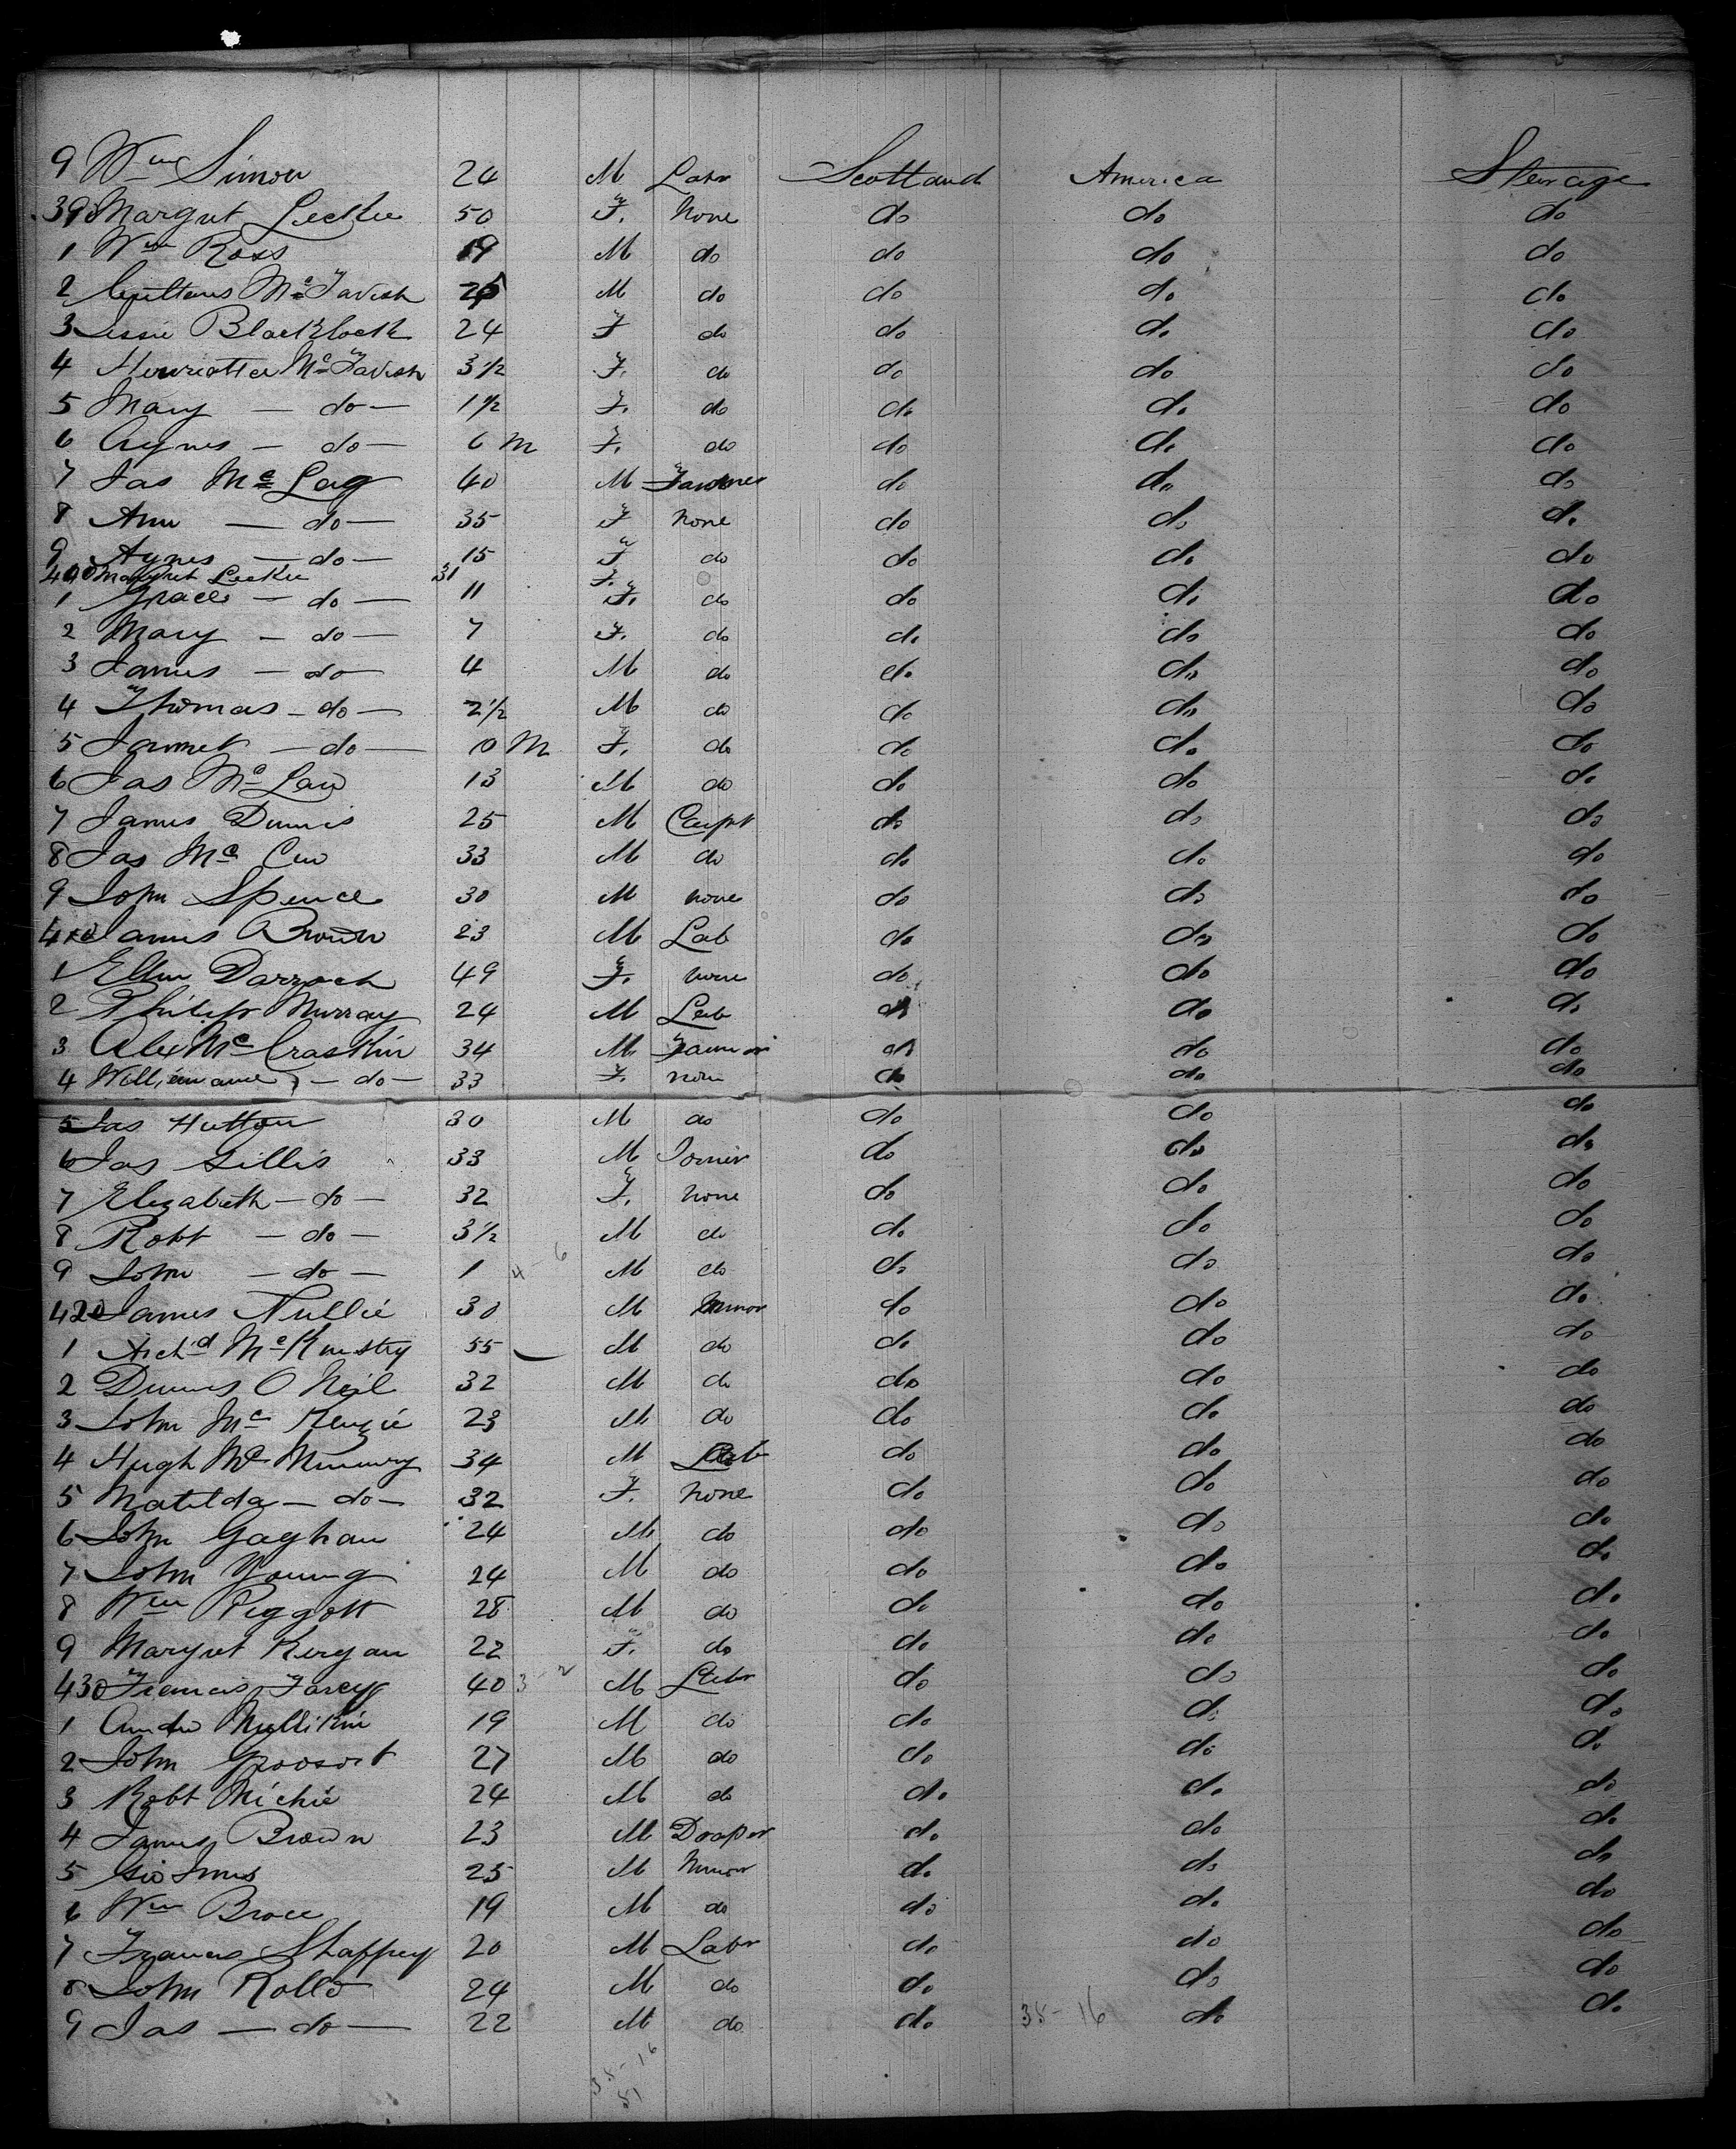 9 Wm Simon 24 M Labr Scotland America Sterage
390 Margret Leckie 50 F. None do do do
1 Wm Ross 19 M do do do do
2 McTavish M do do do do
3 Jessie Blacklock 24 F do do do do
4 Henriatta McTavish 3 1/2 F. do do do do
5 Mary — do — 1 1/2 F. do do do do
6 Agnes — do — 6 M F. do do do do
7 Jas McLag 40 M Farmer do do do
8 Ann — do — 35 F None do do do
9 Agnes — do — 15 F do do do do
400 Margret Leckie 31 F.
1 Grace — do — 11 F. do do do do
2 Mary — do — 7 F. do do do do
3 James — do 4 M do do do do
4 Thomas — do — 2 1/2 M do do do do
5 Jannet — do — 10 M F. do do do do
6 Jas McLaw 13 M do do do do
7 James Dennis 25 M Carpt do do do
8 Jas Mc Cew 33 M do do do do
9 John Spence 30 M none do do do
410 James Brown 23 M Lab do do do
1 Ellen Darroch 49 F. none do do do
2 Philip Murray 24 M Lab do do do
3 Alex McCraskin 34 M Farmer do do do
4 — do — 33 F. none do do do
5 Jas Hutton 30 M do do do do
6 Jas Gillis 33 M Joiner do do do
7 Elezabeth — do — 32 F. None do do do
8 Robt — do — 3 1/2 M do do do do
9 John — do — 1 4 - 6 M do do do do
420 James Nullie 30 M Minor do do do
1 Archd McKinstry 55 M do do do do
2 Dennis O Neil 32 M do do do do
3 John Mc Kenzie 23 M do do do do
4 Hugh Mc 34 M Lab do do do
5 Matilda — do — 32 F. None do do do
6 John Gaghan 24 M do do do do
7 John Young 24 M do do do do
8 Wm Piggott 28 M do do do do
9 Margret Kergan 22 F. do do do do
430 Francis Farcey 40 3 - 2 M Labr do do do
1 Mullikin 19 M do do do do
2 John 27 M do do do do
3 Robt Michie 24 M do do do do
4 James Brown 23 M Draper do do do
5 Geo Innes 25 M Minor do do do
6 Wm Brace 19 M do do do do
7 Francis Shaffrey 20 M Labr do do do
8 John Rollo 24 M do do do do
9 Jas — do — 22 M do do 38 - 16 do do
38 - 16
51